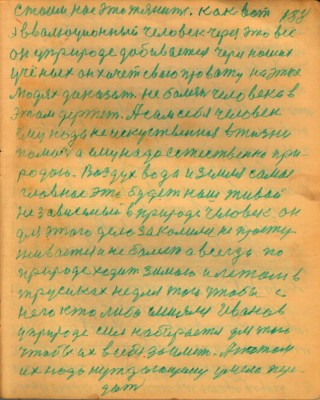 стоим нас это тянит. как вот
158
Эвалюционный человек через это всё
он у природе добивается через наших
учёных он хочет свою правоту на этих
людях доказать. не был бы человек в
этом держет. А сам себя человек
ему надо не искуственная в жизни
помощь а ему надо естественно при-
родою. Воздух вода и земля самое
главное это будет наш живой
независимый в природе человек он
для этого дело закалился не просту-
живается и не болеет а всегда по
природе ходит зимою и летом в
трусиках не для того чтобы с
него кто либо смиялся Иванов
у природе сил набирается для того
чтобы их в себе имет. А потом
их надо нуждающему умело пере-
дат